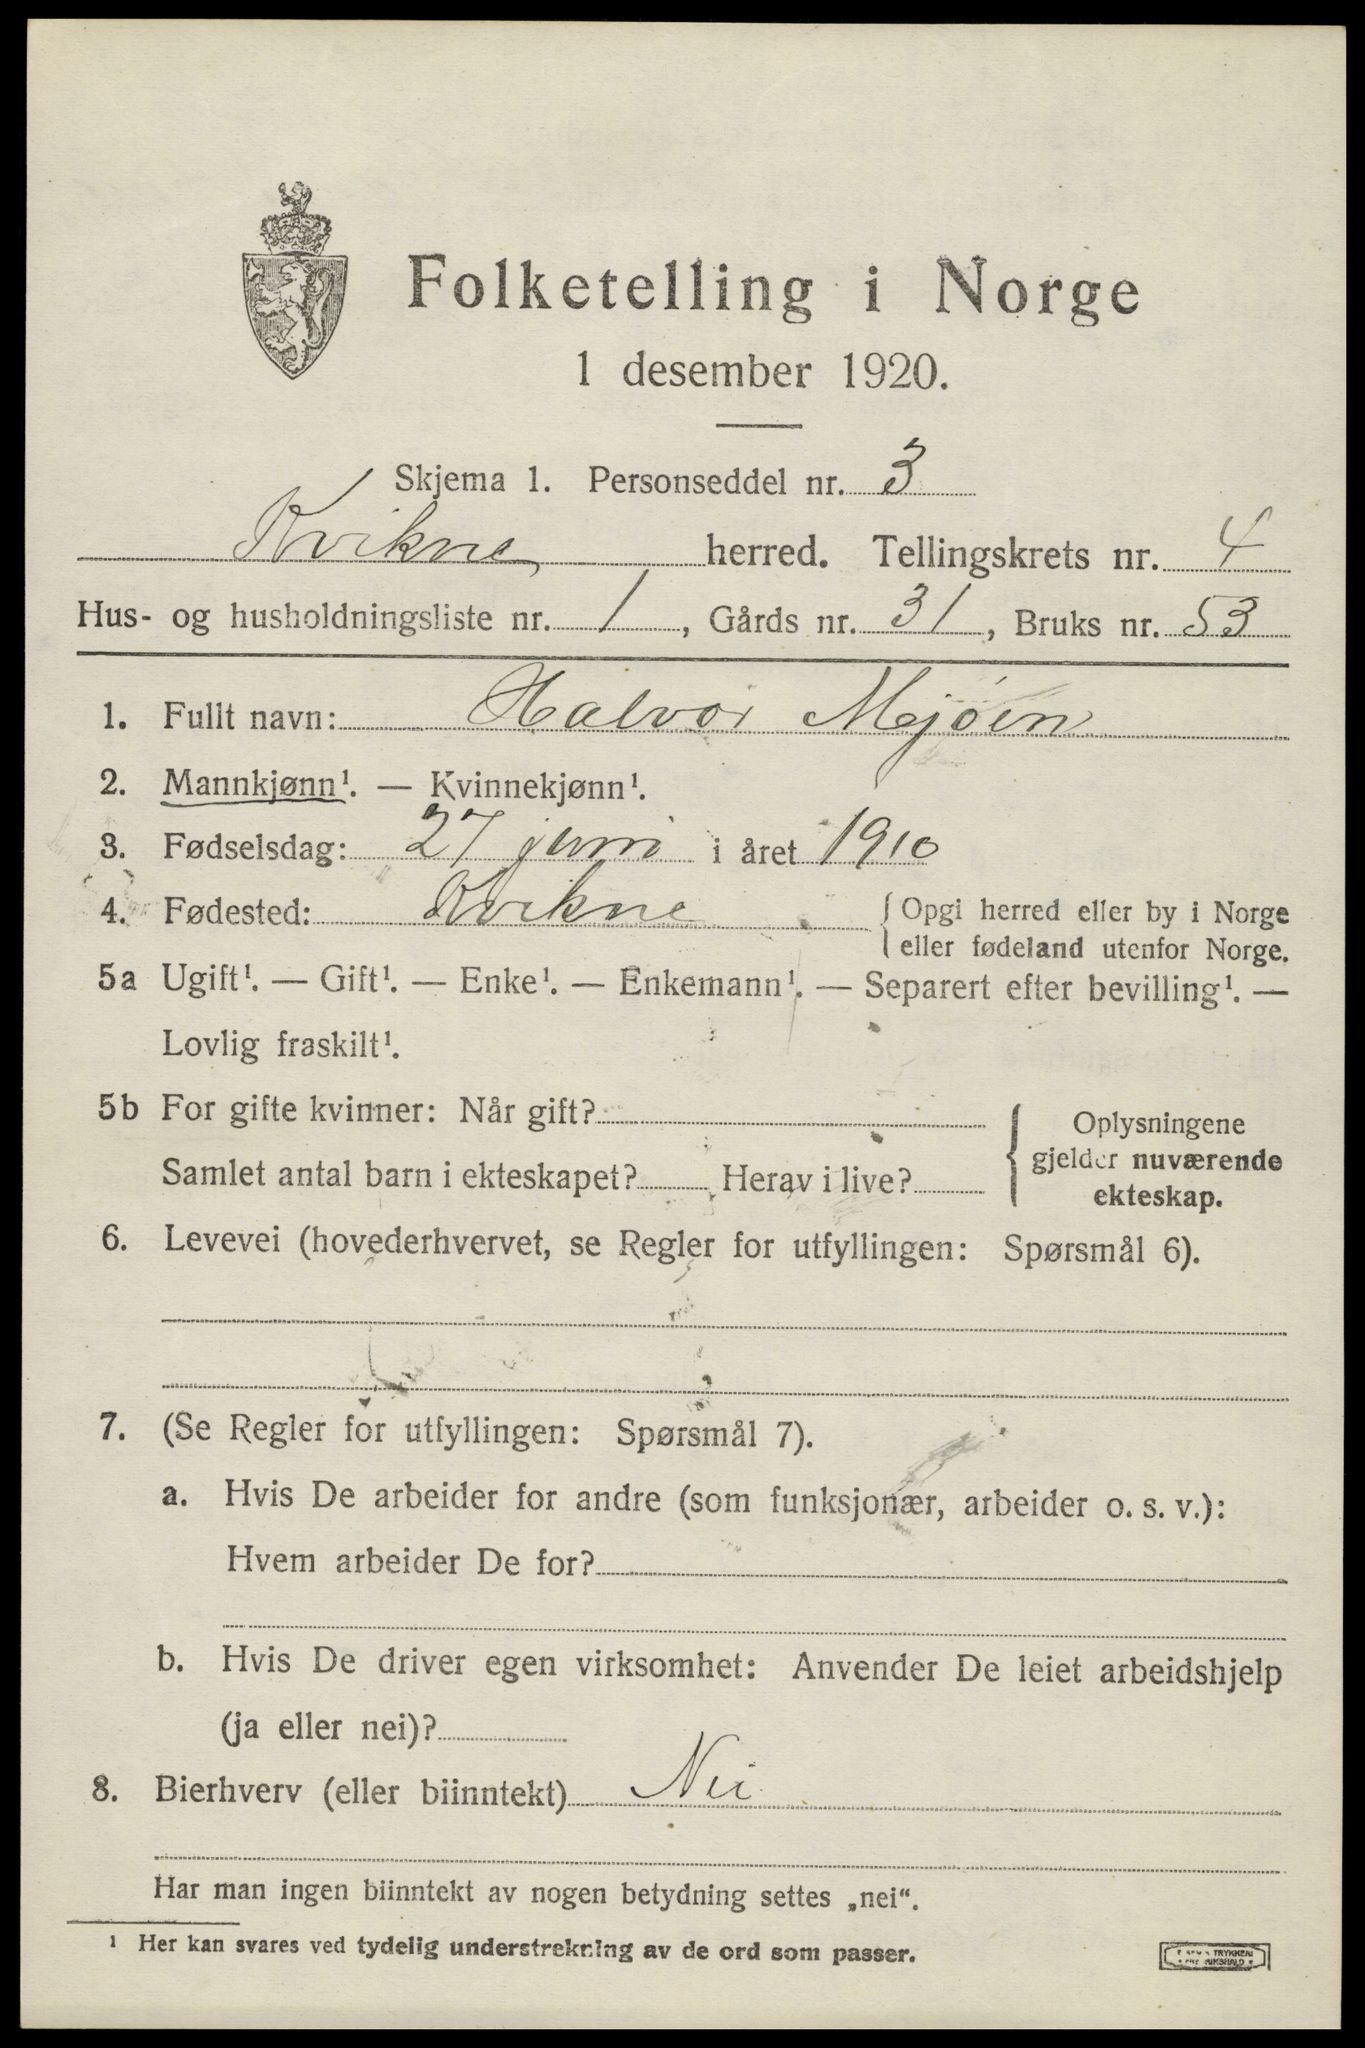 Folketelling i Norge
1 desember 1920.
Skjema 1. Personseddel nr. 3
Kvikne herred. Tellingskrets nr. 4
Hus- og husholdningsliste nr. 1, Gårds nr. 31, Bruks nr. 53
1. Fullt navn: Halvor Mjøen
2. Mannkjønn¹. — Kvinnekjønn¹.
3. Fødselsdag: 27 juni i året 1910
4. Fødested: Kvikne { Opgi herred eller by i Norge
eller fødeland utenfor Norge.
5a Ugift¹. — Gift¹. — Enke¹. — Enkemann¹. — Separert efter bevilling¹. —
Lovlig fraskilt¹.
5b For gifte kvinner: Når gift?
Samlet antal barn i ekteskapet? Herav i live?
Oplysningene
gjelder nuværende
ekteskap.
6. Levevei (hovederhvervet, se Regler for utfyllingen: Spørsmål 6).
7. (Se Regler for utfyllingen: Spørsmål 7).
a. Hvis De arbeider for andre (som funksjonær, arbeider o. s. v.):
Hvem arbeider De for?
b. Hvis De driver egen virksomhet: Anvender De leiet arbeidshjelp
(ja eller nei)?
8. Bierhverv (eller biinntekt) Nei
Har man ingen biinntekt av nogen betydning settes „nei“.
¹ Her kan svares ved tydelig understrekning av de ord som passer.